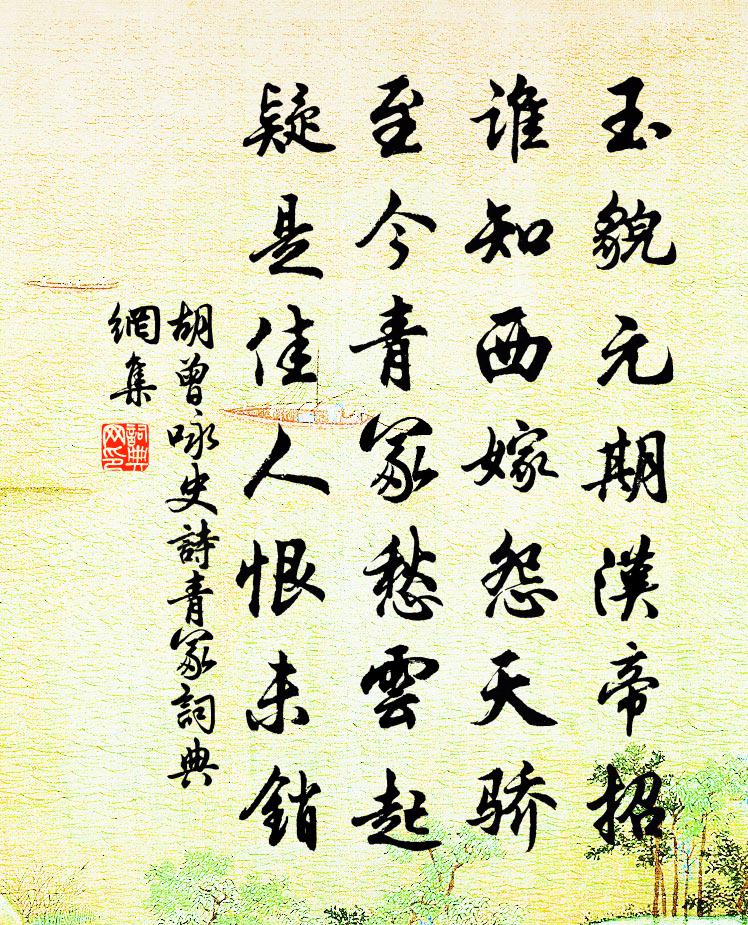 玉貌元期漢帝招
誰知西嫁怨天骄
至今青冢愁雲起
疑是佳人恨未銷
胡曾咏史詩青冢詞典
網集
詞典
网印